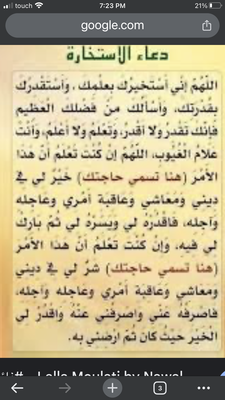 touch 7:23 PM 21%
google.com
دعاء الاستخارة
اللّهُمّ إني أستخيرك بعلمك، وأستقدرك
بقدرتك، وأسألك من فضلك العظيم
فإنك تقدر ولا أقدر، وتعلم ولا أعلم، وأنت
علام الغيوب، اللّهُمّ إن كنت تعلم أن هذا
الأمر (هنا تسمي حاجتك) خير لي في
ديني ومعاشي وعاقبة أمري وعاجله
وآجله، فاقدره لي ويسره لي ثم بارك
لي فيه، وإن كنت تعلم أن هذا الأمر
(هنا تسمي حاجتك) شر لي في ديني
ومعاشي وعاقبة أمري وعاجله وآجله،
فاصرفه عني واصرفني عنه واقدر لي
الخير حيث كان ثم ارضني به.
Lalla Moulati by Nawal
3